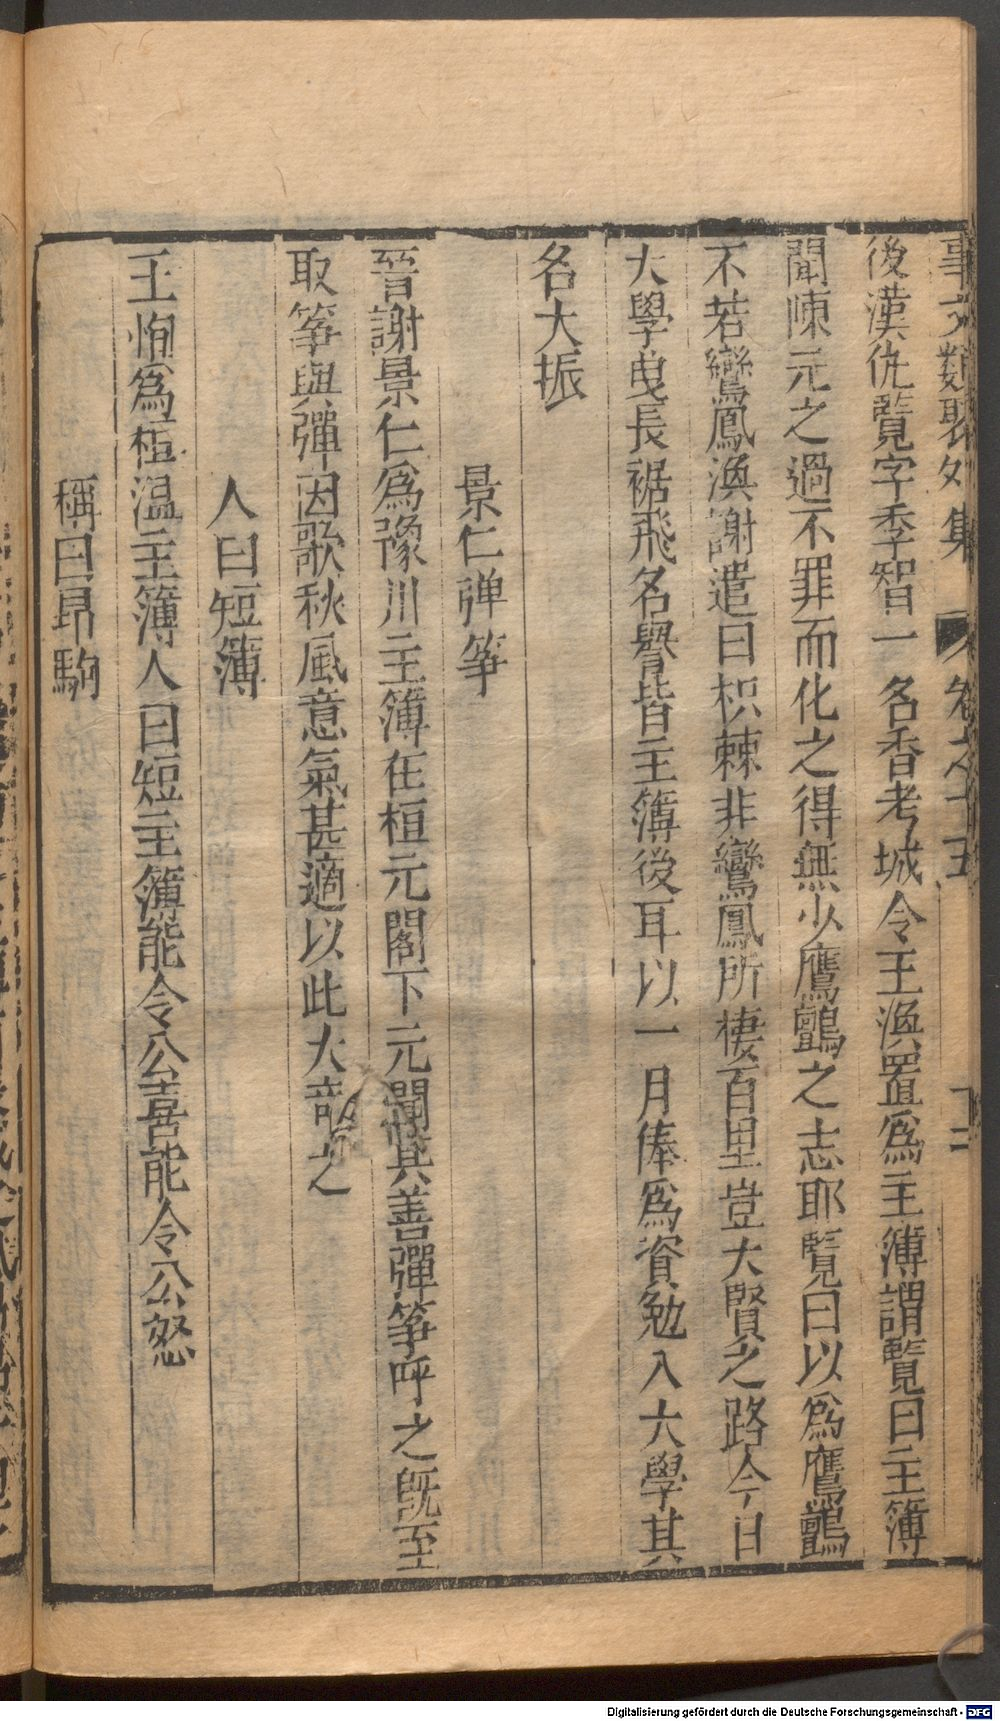 事文類聚外集 卷之十五 十二
後漢仇覧字季智一名香考城令王渙置爲主簿謂覧曰主簿
聞陳元之過不罪而化之得無少鷹鸇之志耶覧曰以爲鷹鸇
不若鸞鳳渙謝遣曰枳棘非鸞鳳所棲百里豈大賢之路今日
大學曳長裾飛名譽皆主簿後耳以一月俸爲資勉入大學其
名大振
景仁弹筝
晉謝景仁爲豫川主簿在桓元閣下元聞其善彈筝呼之既至
取筝與彈因歌秋風意氣甚適以此大竒之
人曰短簿
王恂爲桓温主簿人曰短主簿能令公喜能令公怒
稱曰昻駒
Digitalisierung gefördert durch die Deutsche Forschungsgemeinschaft - DFG